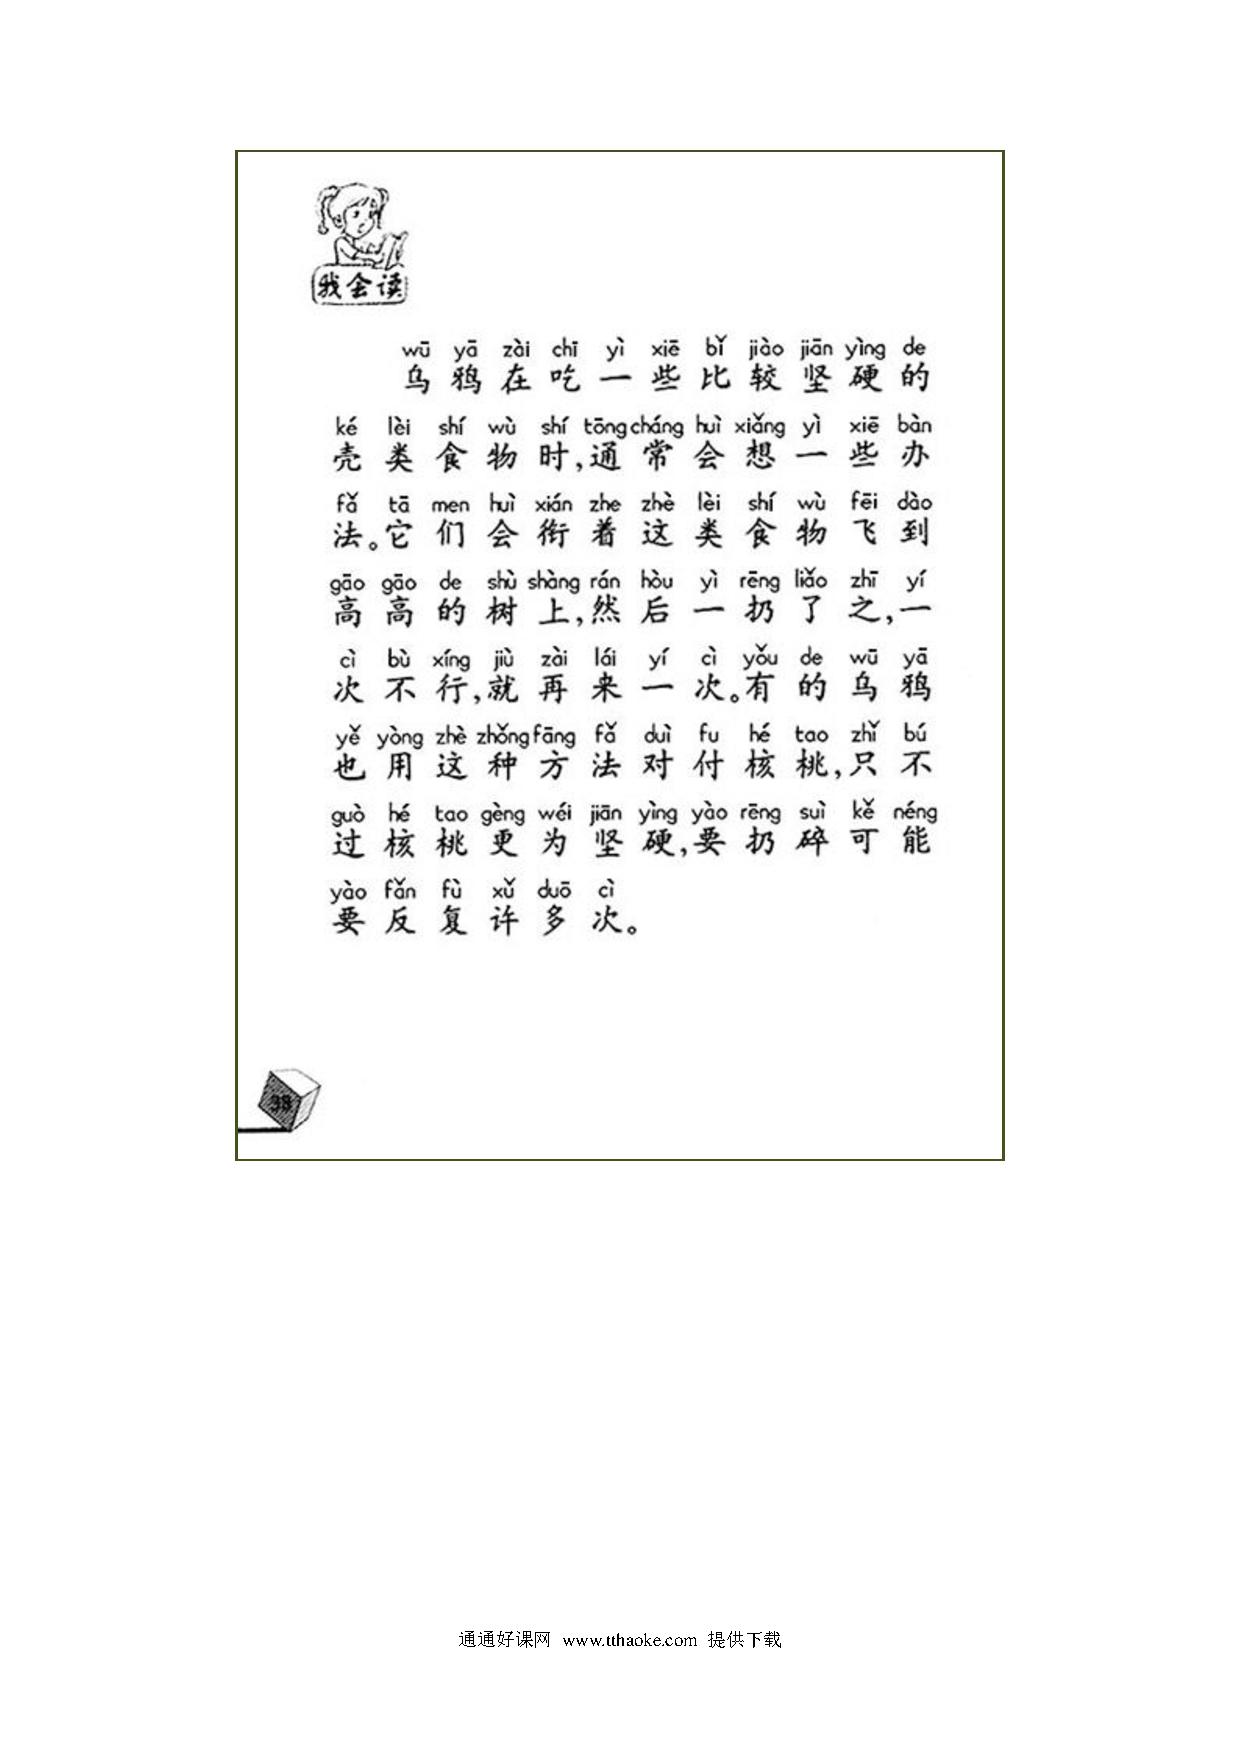 我会读
wū yā zài chī yì xiē bǐ jiào jiān yìng de
乌鸦在吃一些比较坚硬的
ké lèi shí wù shí tōng cháng huì xiǎng yì xiē bàn
壳类食物时,通常会想一些办
fǎ tā men huì xián zhe zhè lèi shí wù fēi dào
法。它们会衔着这类食物飞到
gāo gāo de shù shàng rán hòu yì rēng liǎo zhī yí
高高的树上,然后一扔了之,一
cì bù xíng jiù zài lái yí cì yǒu de wū yā
次不行,就再来一次。有的乌鸦
yě yòng zhè zhǒng fāng fǎ duì fu hé tao zhǐ bú
也用这种方法对付核桃,只不
guò hé tao gèng wéi jiān yìng yào rēng suì kě néng
过核桃更为坚硬,要扔碎可能
yào fǎn fù xǔ duō cì
要反复许多次。
38
通通好课网 www.tthaoke.com 提供下载